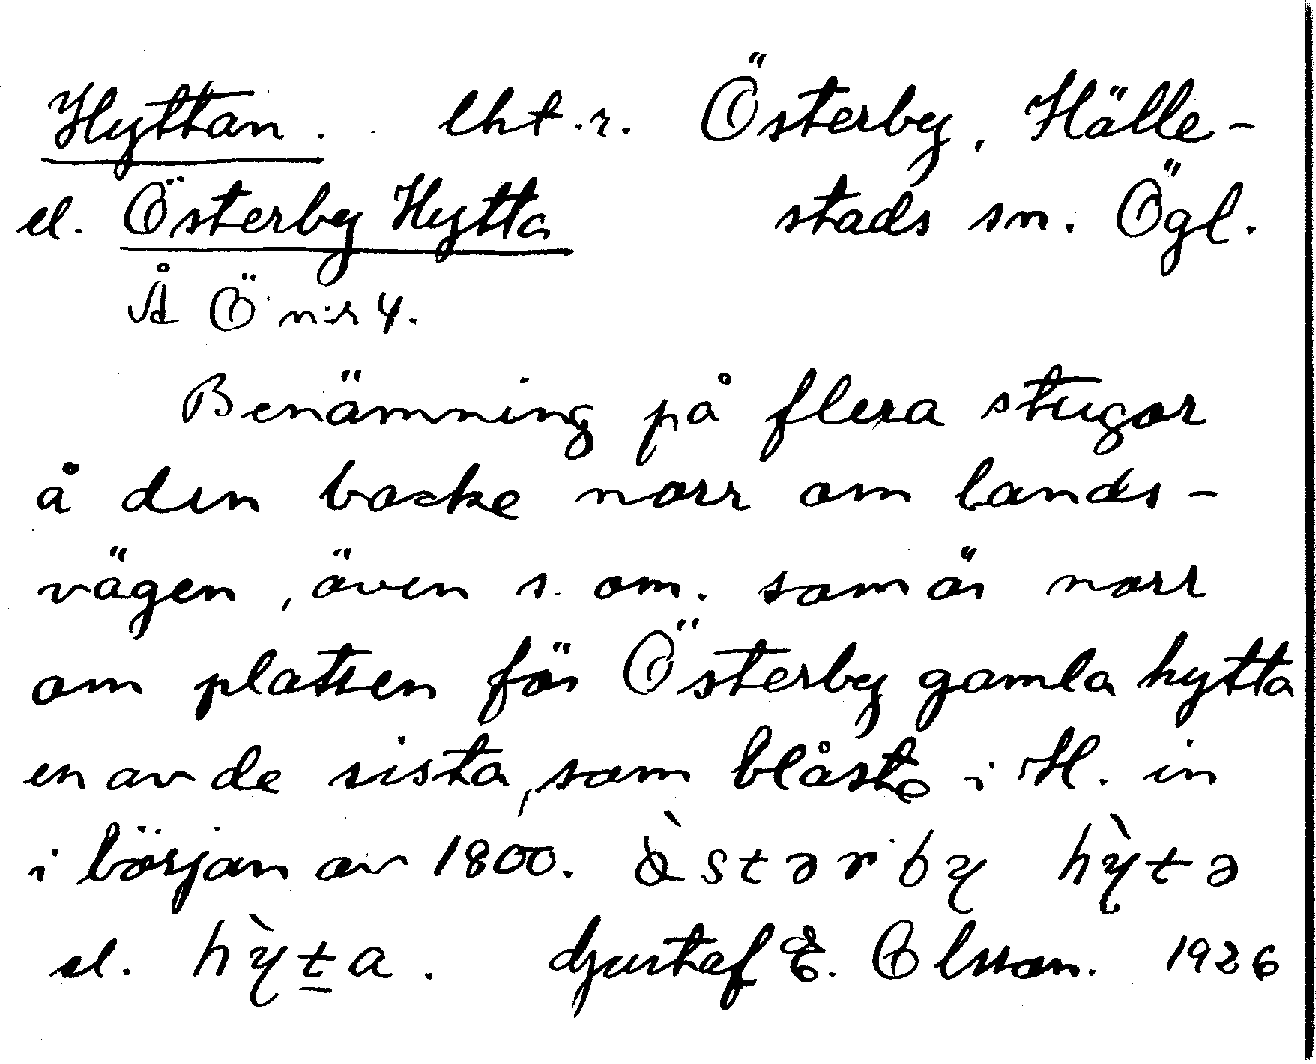 Hyttan. lht.r. Österby, Hälle-
el. Österby Hytta stads sn. Ögl.
Å Ö n:r 4.
Benämning på flera stugor
å den backe norr om lands-
vägen, även s. om. som är norr
om platsen för Österby gamla hytta
en av de sista, som blåste i H. in
i början av 1800. hỳtə
el. hỳta. Gustaf E. Olsson. 1926